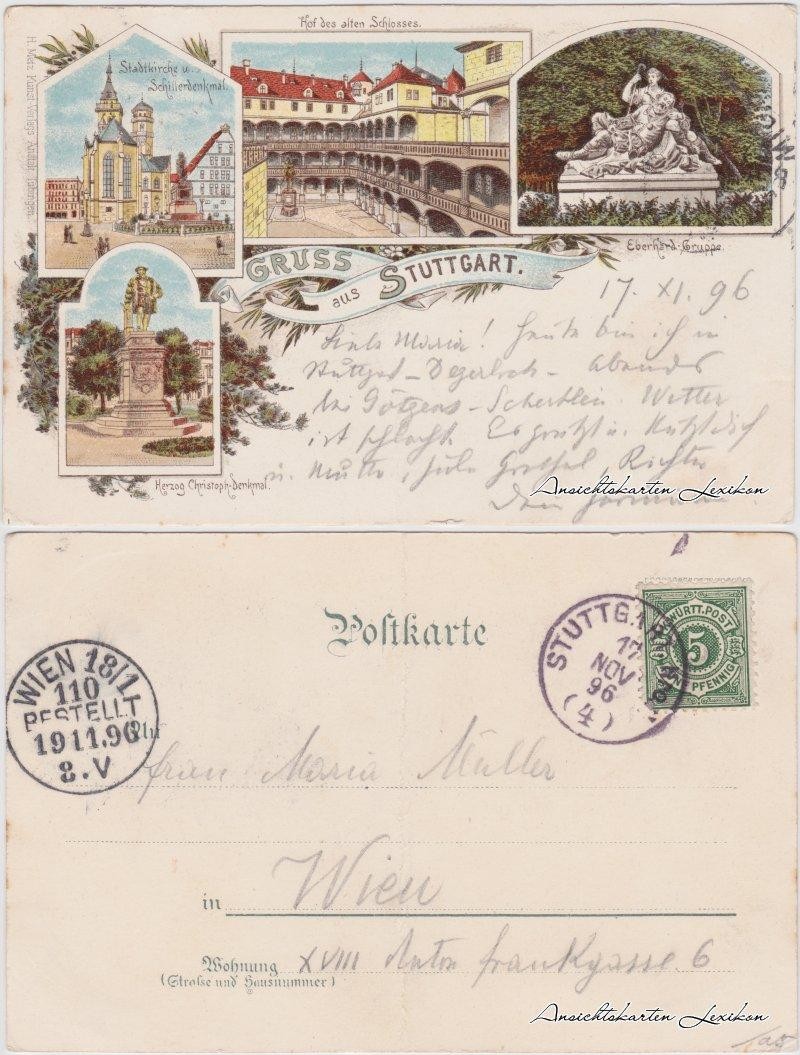 Hof des alten Schlosses.
Stadtkirche u.
Schillerdenkmal.
H. Metz, Kunst-Verlags-Anstalt, Tübingen.
Eberhard-Gruppe.
GRUSS
aus STUTTGART.
Herzog Christoph-Denkmal.
17. XI. 96
Maria! Heute bin ich in
Stuttgart-Degerloch - Abends
bei Götzens - Wetter
ist schlecht. Es grüßt u. küßt dich
u. Mutter,
Dein Hermann
Ansichtskarten Lexikon
Postkarte
STUTTG.
17
NOV
96
(4)
K. WÜRTT. POST
5
FÜNF PFENNIG
WIEN 18/1
110
BESTELLT
19 11.96
8.V
An
Frau Maria Müller
in Wien
Wohnung XVIII Anton Frankgasse 6
(Straße und Hausnummer)
Ansichtskarten Lexikon